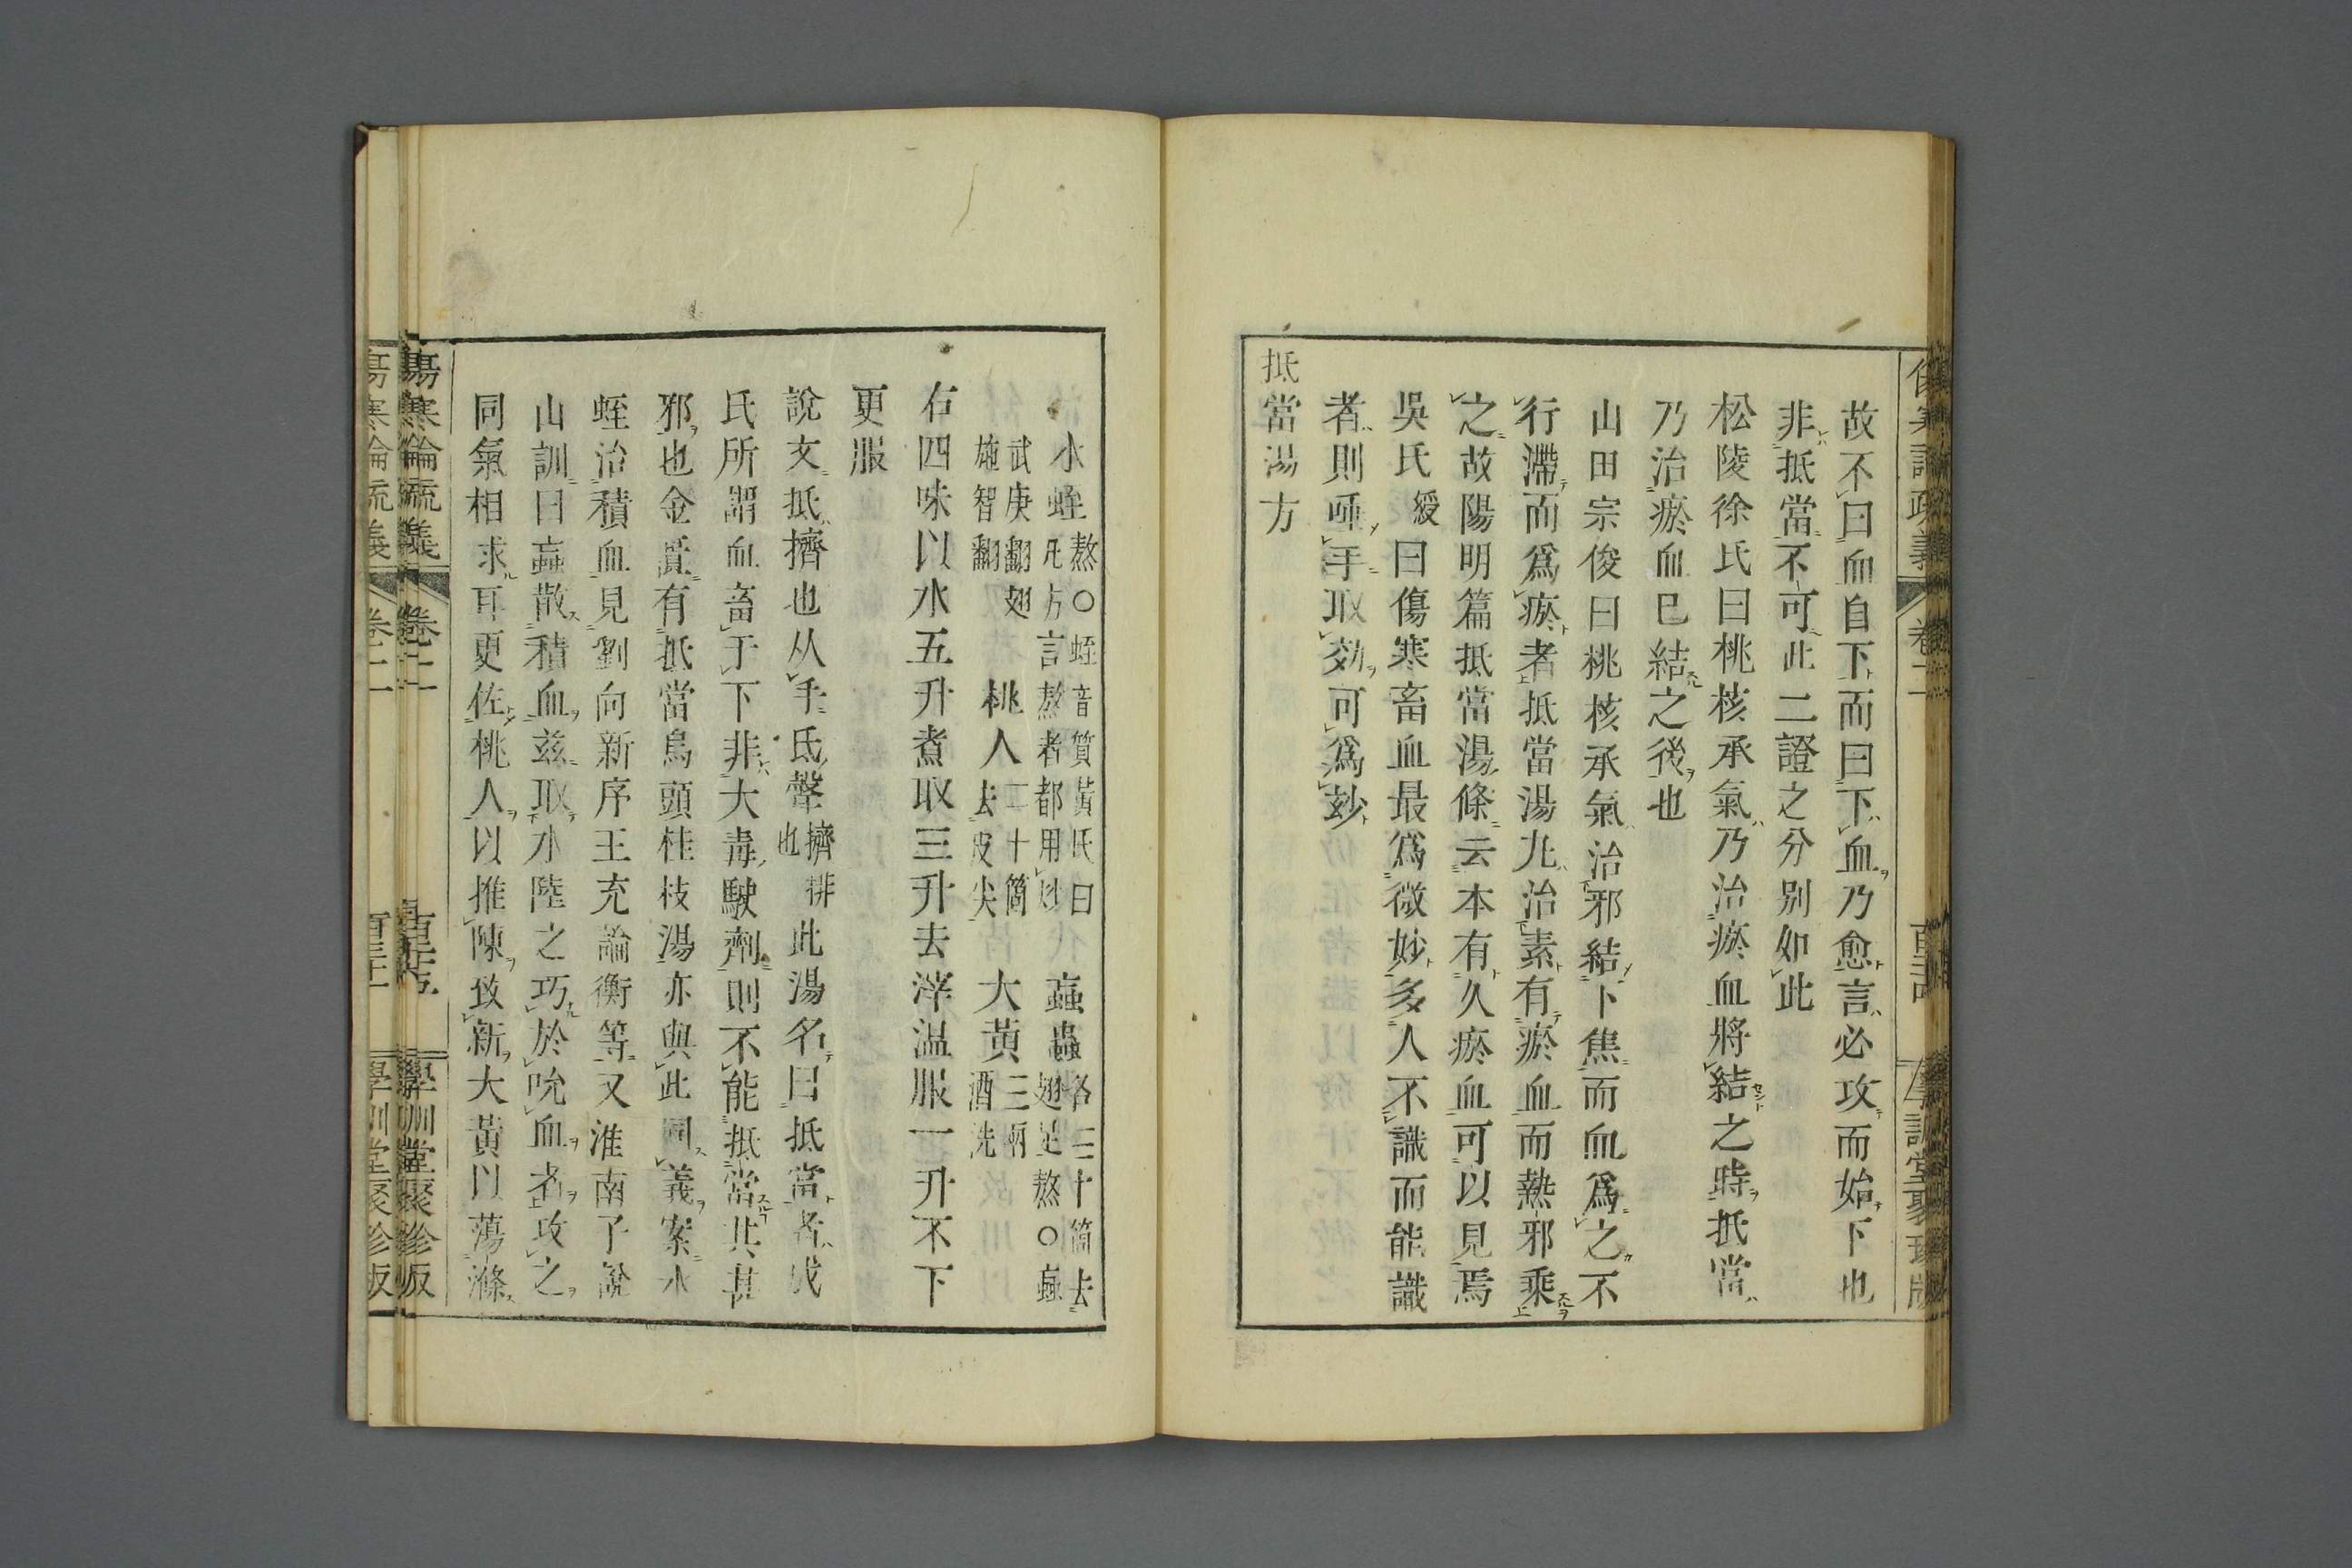 故不曰血自下而曰下血乃愈言必攻而始下也
非抵當不可此二證之分別如此
松陵徐氏曰桃核承氣乃治瘀血將結之時抵當
乃治瘀血已結之後也
山田宗俊曰桃核承氣治邪結下焦而血爲之不
行滯而爲瘀者抵當湯丸治素有瘀血而熱邪乘
之故陽明篇抵當湯條云本有久瘀血可以見焉
吳氏綬曰傷寒畜血最爲微妙多人不識而能識
者則唾手取効可爲玅
抵當湯方
水蛭熬○蛭音質黃氏曰凡方言熬者都用炒 蝱蟲各三十箇去翅足熬○蝱
武庚翻翅施智翻 桃人二十箇去皮尖 大黃三兩酒洗
右四味以水五升煮取三升去滓温服一升不下
更服
說文抵擠也从手氐聲擠排也此湯名曰抵當者成
氏所謂血畜于下非大毒駛劑則不能抵當其甚
邪也金匱有抵當烏頭桂枝湯亦與此同義案水
蛭治積血見劉向新序王充論衡等又淮南子說
山訓曰蝱散積血兹取水陸之巧於吮血者攻之
同氣相求耳更佐桃人以推陳致新大黃以蕩滌
傷寒論疏義 卷二 學訓堂聚珍版